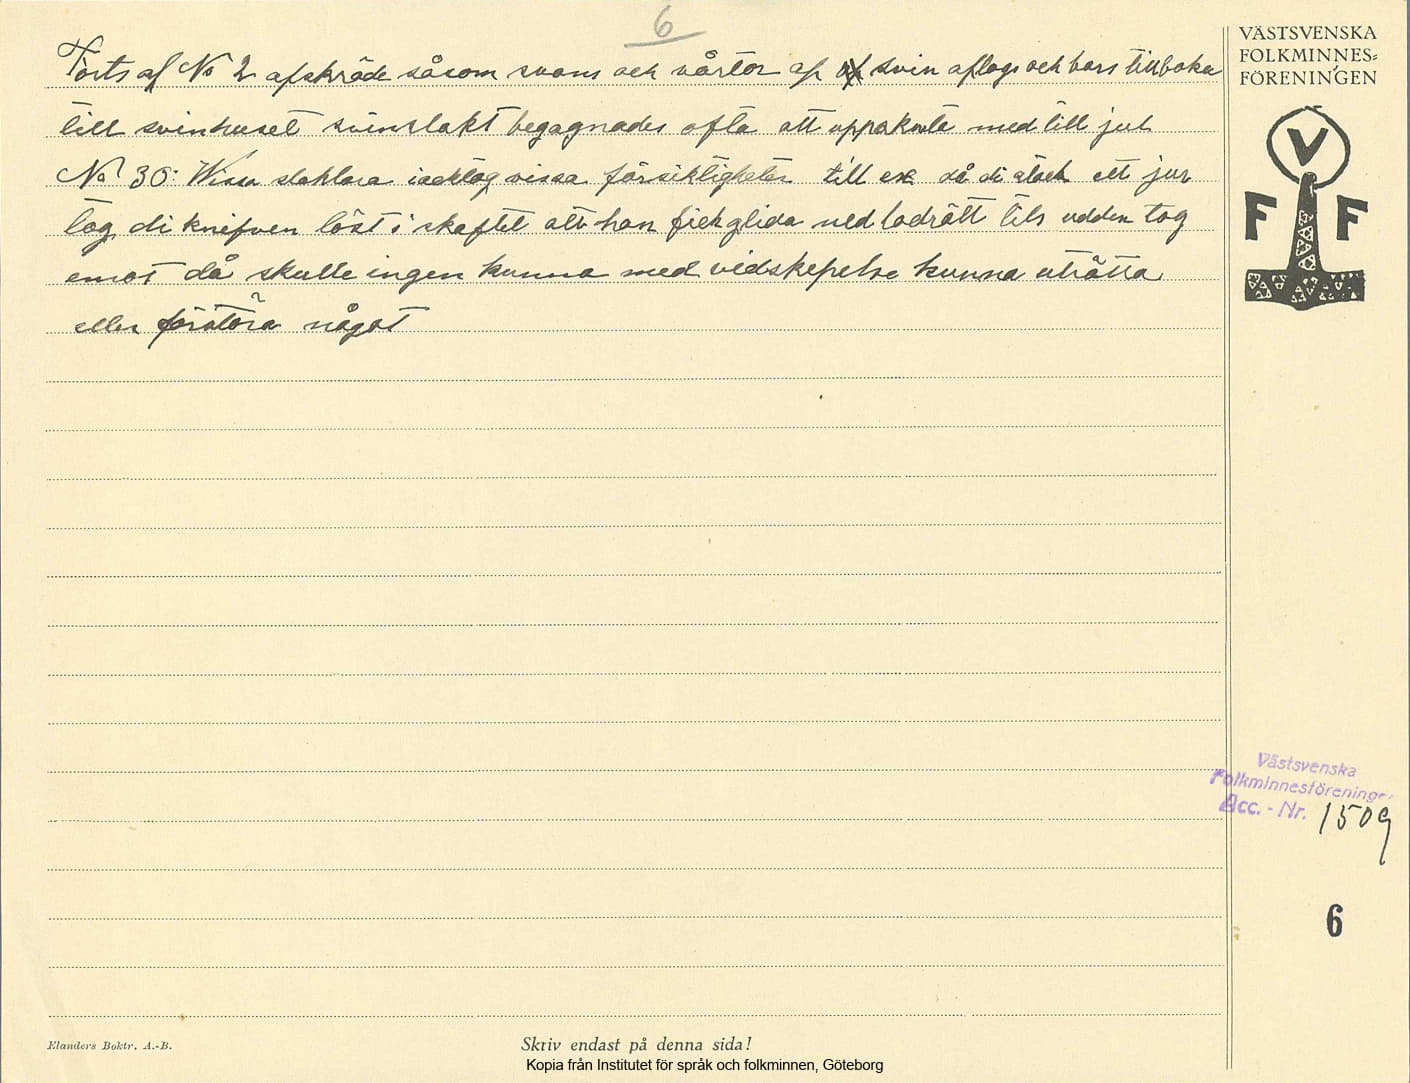 6
Forts af No 2 afskräde såsom svans och vårtor af svin aflogs och bars tillbaka
till svinhuset svinslakt begagnades ofta att uppskrata med till jul
No 30: Wissa slaktare iacktog vissa försiktigheter till ex då di stack ett jur
tog di knifven löst i skaftet att han fick glida ned lodrätt tils udden tog
emot då skulle ingen kunna med vidskepelse kunna uträtta
eller förstöra något
VÄSTSVENSKA
FOLKMINNES=
FÖRENINGEN
V
F F
Västsvenska
Folkminnesföreningen
Acc. - Nr. 1509
6
Elanders Boktr. A.-B.
Skriv endast på denna sida!
Kopia från Institutet för språk och folkminnen, Göteborg